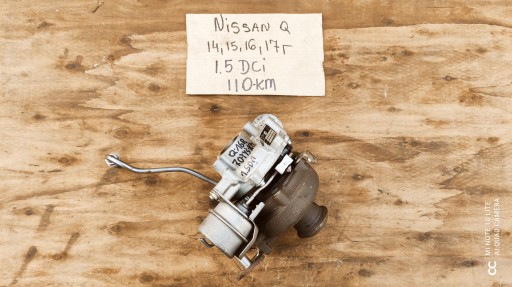 NISSAN Q
14,15,16,17r
1.5 DCi
110KM
Q168
1.5DCI
MI NOTE 10 LITE
AI QUAD CAMERA